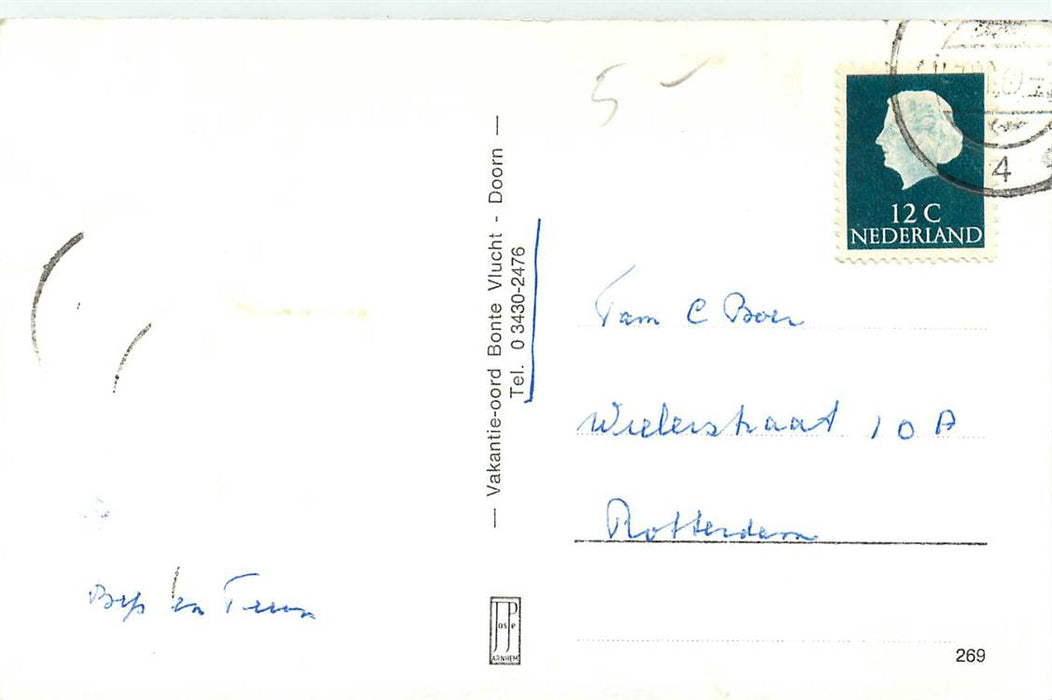 5 -
12 C
NEDERLAND
4
— Vakantie-oord Bonte Vlucht - Doorn —
Tel. 0 3430-2476
Fam C Boer
Wielerstraat 10 A
Rotterdam
Bep en Teun
ARNHEM
269